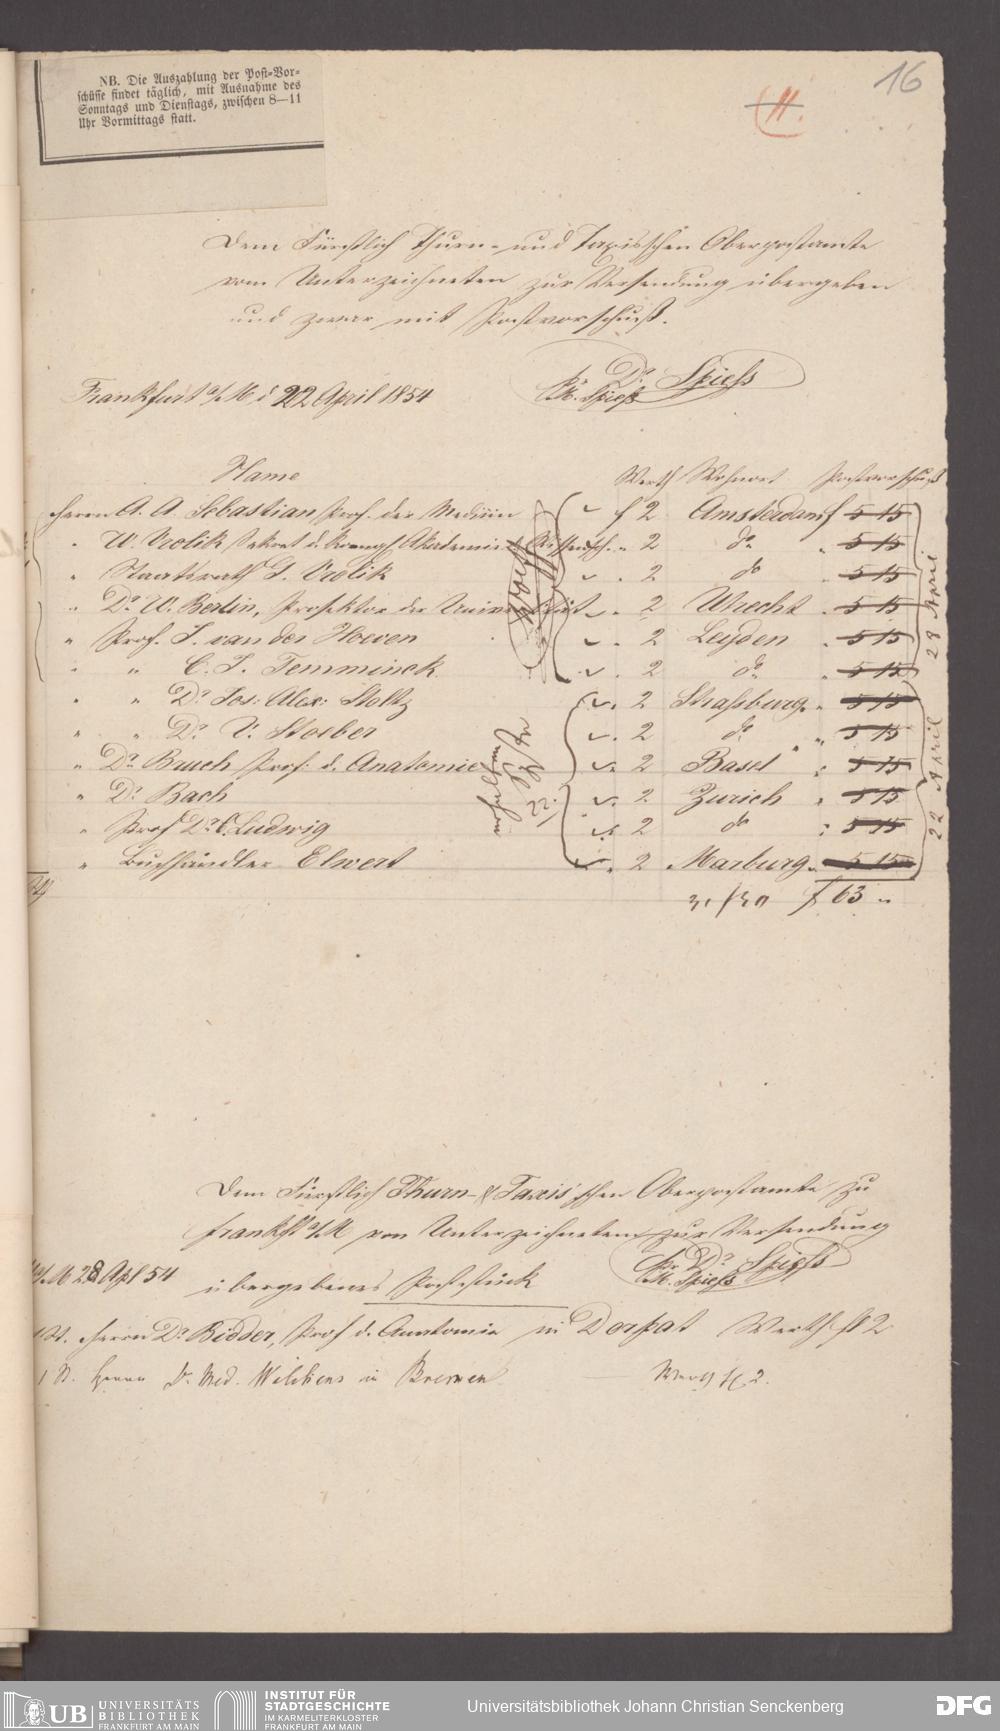 NB. Die Auszahlung der Post-Vor-
schüsse findet täglich, mit Ausnahme des
Sonntags und Dienstags, zwischen 8—11
Uhr Vormittags statt.
16
11.
Dem Fürstlich Thurn- und Taxisschen Oberpostamte
vom Unterzeichneten zur Versendung übergeben
und zwar mit Postvorschuß.
Frankfurt a/M d 22 April 1854
Dr. Spieß
Spieß
Name Werth Wohnort Postvorschuß
Herrn A. A. Sebastian Prof. der Medizin f 2 Amsterdam f 5 15
" W. Vrolik Sekret d. Königl. Akademie d. Wissensch. " 2 do " 5 15
" Staatsrath J. Vrolik " 2 do " 5 15
" Dr. W. Berlin, Prosektor der Universität " 2 Utrecht " 5 15
" Prof. J. van der Hoeven " 2 Leyden " 5 15
" " C. J. Temminck " 2 do " 5 15
" " Dr. Jos: Alex: Stoltz " 2 Straßburg " 5 15
" " Dr. V. Stoeber " 2 do " 5 15
" Dr. Bruch Prof: d. Anatomie " 2 Basel " 5 15
" Dr. Bach " 2 Zurich " 5 15
" Prof Dr. C. Ludwig " 2 do " 5 15
" Buchhändler Elwert " 2 Marburg " 5 15
28 April
22 April
31/30 f 63 "
Dem Fürstlich Thurn- & Taxis'schen Oberpostamte zu
Frankft a/M von Unterzeichneten zur Versendung
a/M 28 Apl 54 übergebenes Poststück
Dr. Spieß
Spieß
1 St. Herrn Dr. Bidder, Prof d. Anatomie in Dorpat Werth fl 2
1 St. Herrn Dr. Med. Wilckens in Bremen Werth fl 2.
UB UNIVERSITÄTS
BIBLIOTHEK
FRANKFURT AM MAIN
INSTITUT FÜR
STADTGESCHICHTE
IM KARMELITERKLOSTER
FRANKFURT AM MAIN
Universitätsbibliothek Johann Christian Senckenberg
DFG